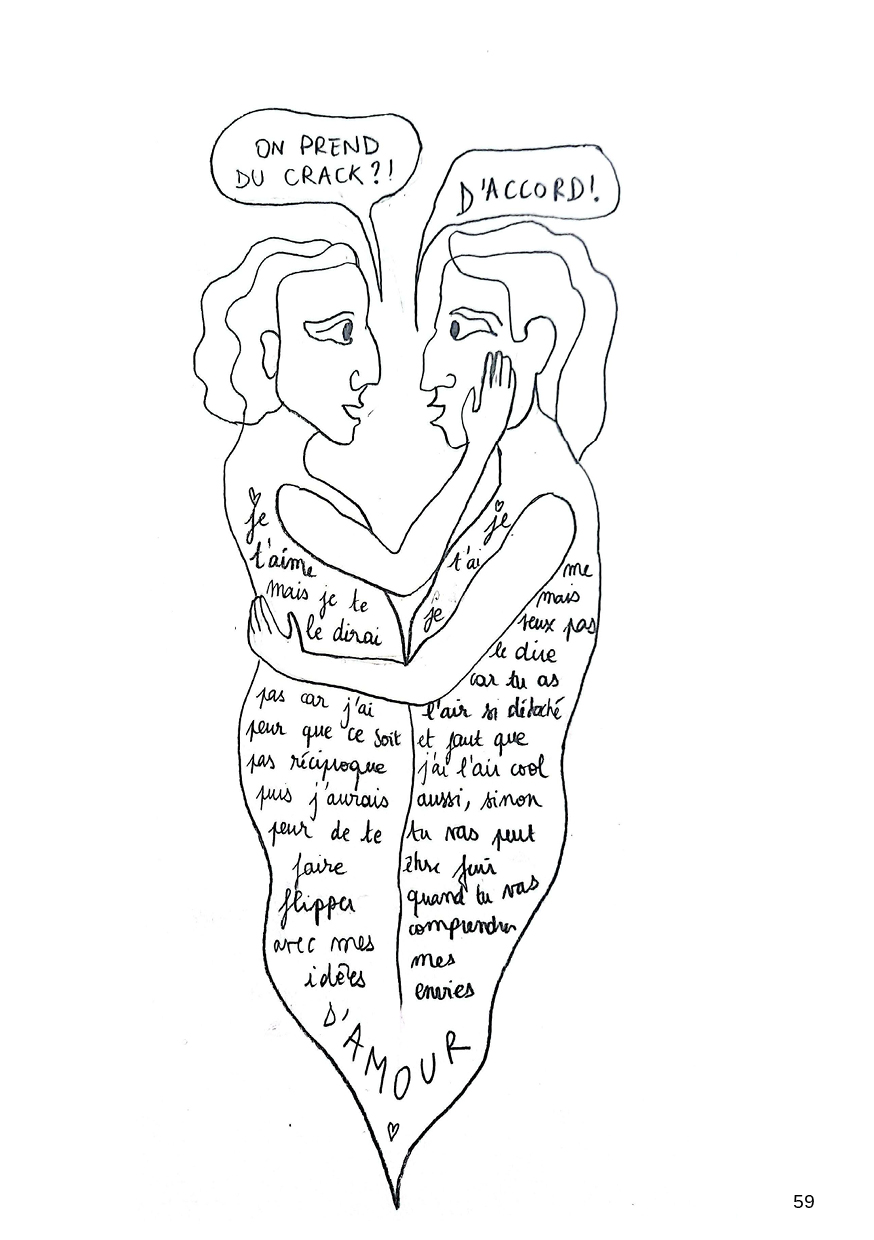 ON PREND
DU CRACK?!
D'ACCORD!
je
t'aime
mais je te
le dirai
pas car j'ai
peur que ce soit
pas réciproque
puis j'aurais
peur de te
faire
flipper
avec mes
idées
je
t'ai me
mais
je veux pas
le dire
car tu as
l'air si détaché
et faut que
j'ai l'air cool
aussi, sinon
tu vas peut
être fuir
quand tu vas
comprendre
mes
envies
D'AMOUR
59